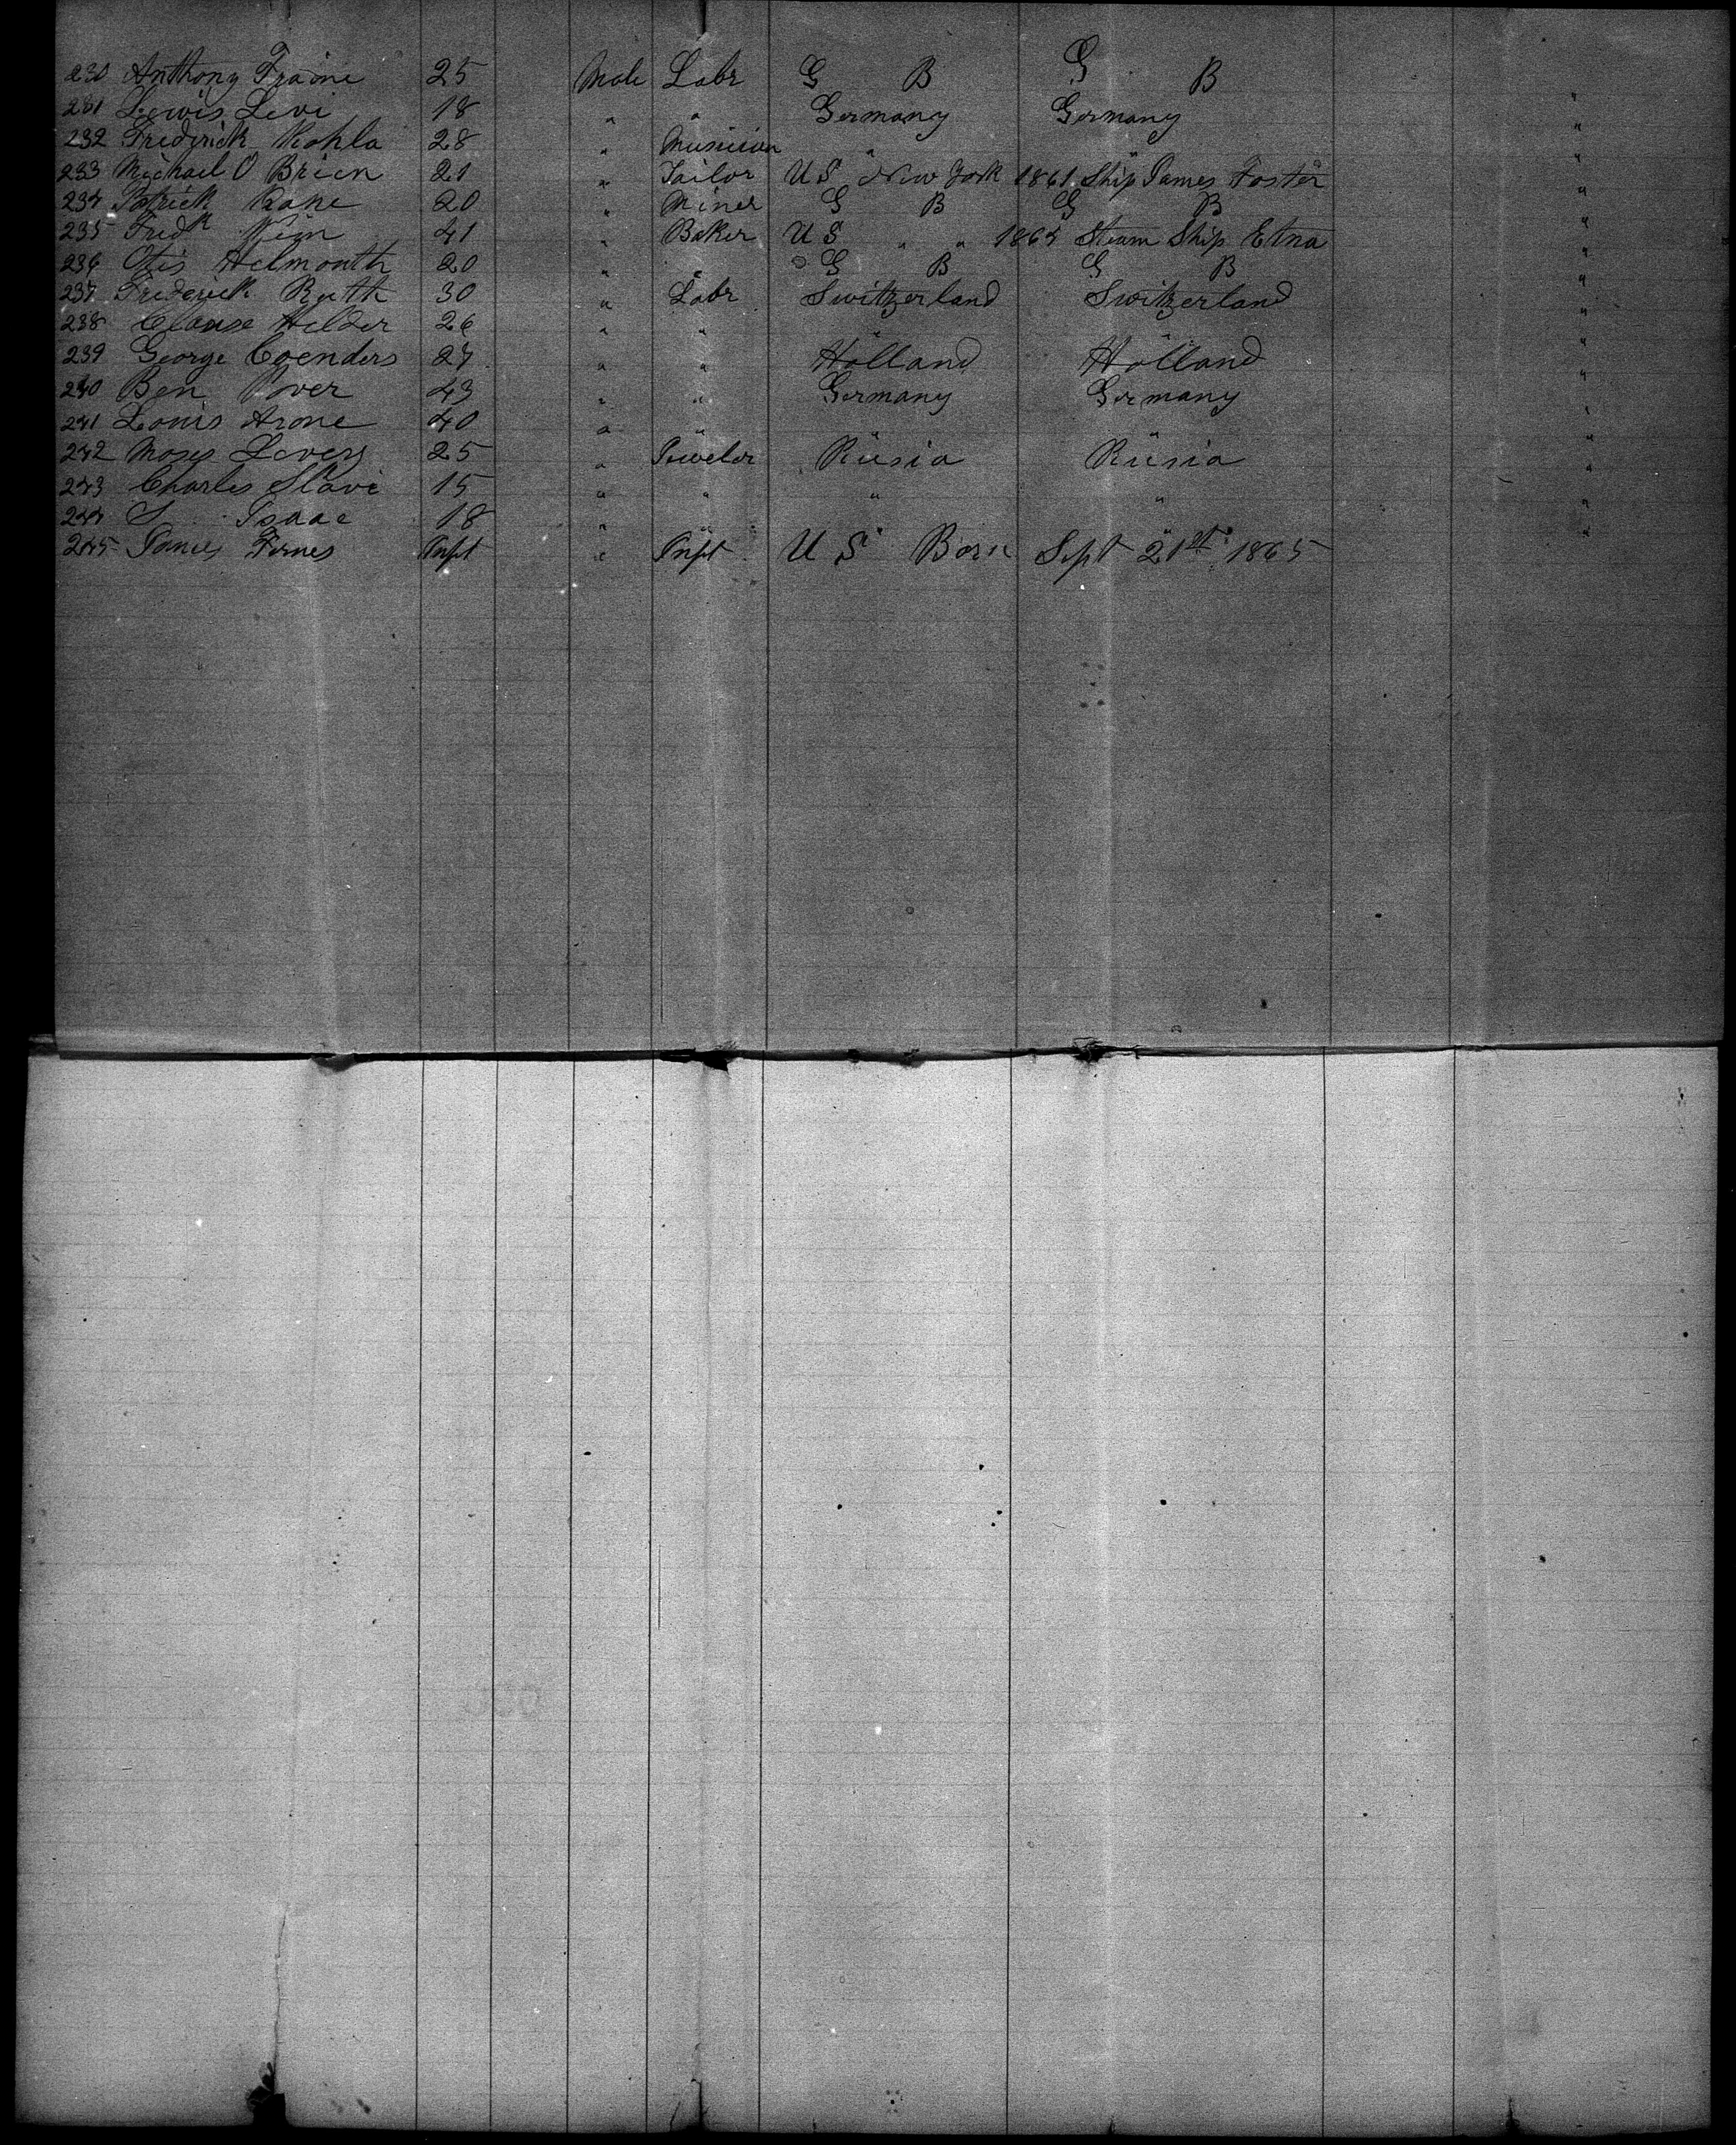 230 Anthony Frame 25 Male Labr G B G B
231 Lewis Levi 18 " " Germany Germany "
232 Frederick Kohla 28 " Musician " " "
233 Michael O Brien 21 " Tailor U S New York 1861 Ship James Foster "
234 Patrick Kane 20 " Miner G B G B "
235 Fredk 41 " Baker U S " " 1865 Steam Ship Etna "
236 Otis Helmonth 20 " " G B G B "
237 Frederick Ruth 30 " Labr Switzerland Switzerland "
238 Clause Helder 26 " " "
239 George Coenders 27 " " Holland Holland "
240 Ben 43 " " Germany Germany "
241 Louis Arone 40 " " " " "
242 Moses Levery 25 " Jeweler Rusia Rusia "
243 Charles Slavi 15 " " " " "
244 S Isaac 18 " " " " "
245 James Inft " Inft U S Born Sept 21st 1865 "